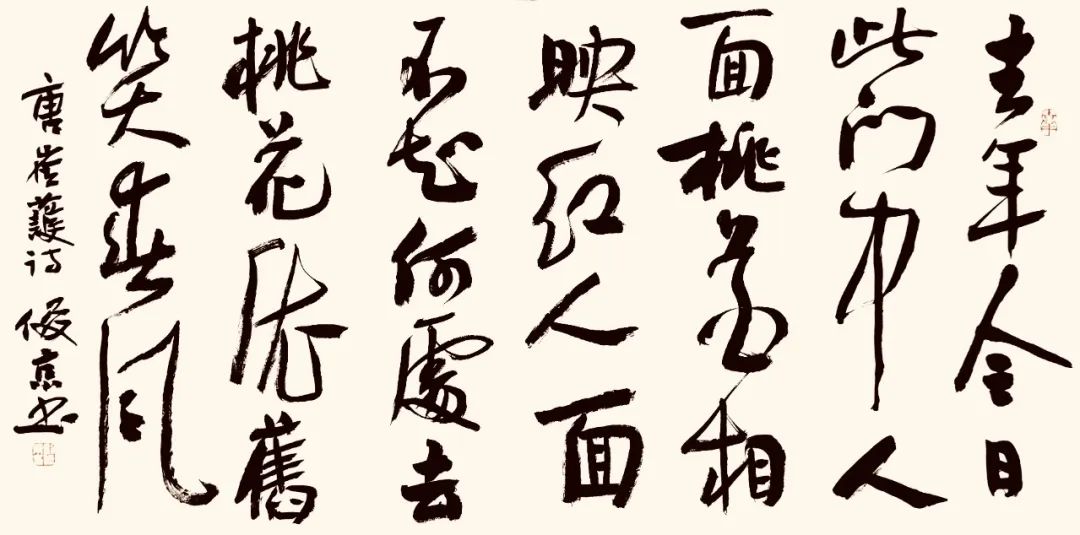 去年今日
此门中人
面桃花相
映红人面
不知何處去
桃花依舊
笑春风
唐崔護诗 俊京书